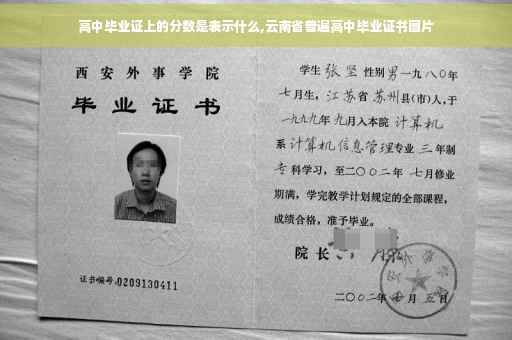 高中毕业证上的分数是表示什么,云南省普通高中毕业证书图片
西安外事学院
毕业证书
证书编号:0209130411
学生 张坚 性别男一九八〇年
七月生, 江苏省 苏州县(市)人,于
一九九九年 九月入本院 计算机
系 计算机信息管理专业 三 年制
专科学习, 至二〇〇二年 七月修业
期满, 学完教学计划规定的全部课程,
成绩合格, 准予毕业。
院长
二〇〇二年 月 五日